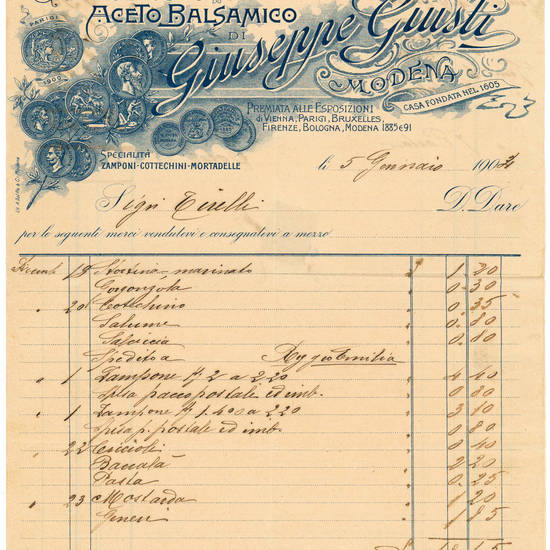 ACETO BALSAMICO
DI
Giuseppe Giusti
MODENA
CASA FONDATA NEL 1605
PARIGI
1900
PREMIATA ALLE ESPOSIZIONI
di VIENNA, PARIGI, BRUXELLES,
FIRENZE, BOLOGNA, MODENA 1885 e 91
SPECIALITÀ
ZAMPONI-COTTECHINI-MORTADELLE
li 5 Gennaio 190
Sigri Tirelli D. Dare
per le seguenti merci vendutevi e consegnatevi a mezzo
19 marinato 1. 20
Gorgonzola 0. 30
20 Cottechino 0. 35
Salume 0. 80
Salsiccia 0. 80
Spedito a Reggio Emilia
" 1 Zampone K 2 a 2.20 4 40
Spesa pacco postale ed imb. 0 80
" 1 Zampone K 1.400 a 2.20 3 10
Spesa p. postale ed imb. 0 80
" 22 Ciccioli 0 40
Baccalà 2 20
Pasta 0. 25
" 23 Mostarda 1 20
Generi 1 85